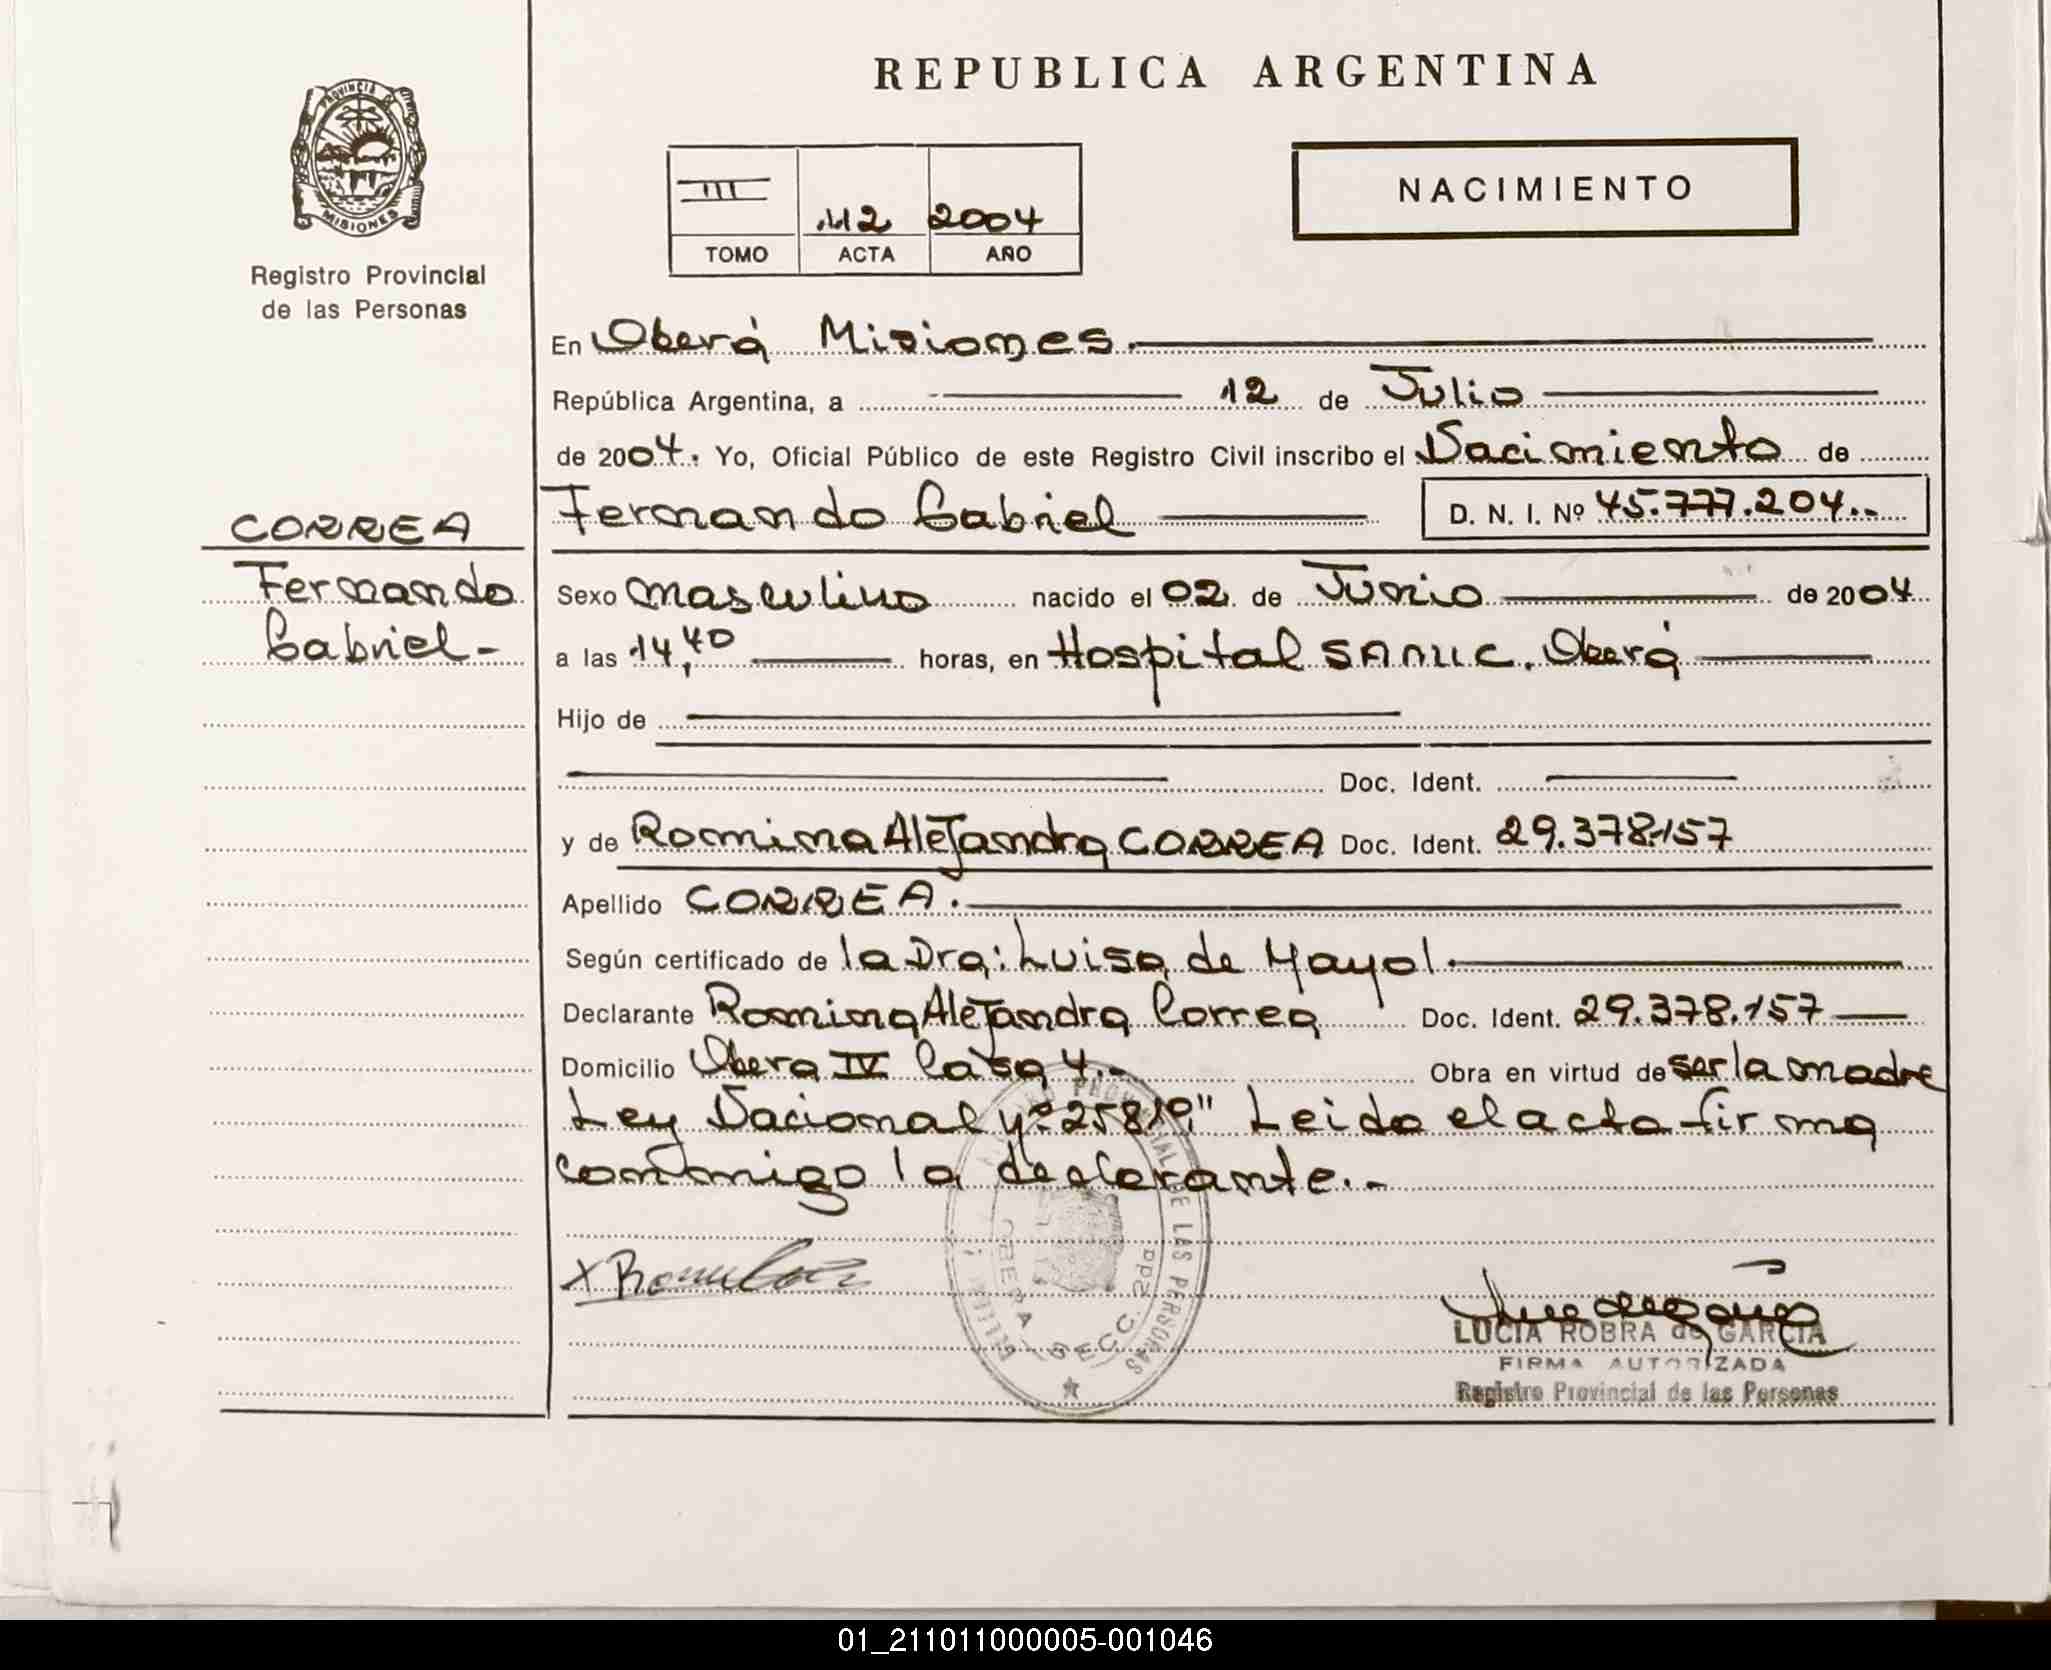 REPUBLICA ARGENTINA
PROVINCIA DE
MISIONES
Registro Provincial
de las Personas
III 112 2004
TOMO ACTA AÑO
NACIMIENTO
En Oberá Misiones.
República Argentina, a 12 de Julio
de 2004. Yo, Oficial Público de este Registro Civil inscribo el Nacimiento de
Fernando Gabriel D. N. I. Nº 45.777.204.-
CORREA
Fernando
Gabriel-
Sexo masculino nacido el 02 de Junio de 2004
a las 14,40 horas, en Hospital SAMIC. Oberá
Hijo de
Doc. Ident.
y de Romina Alejandra CORREA Doc. Ident. 29.378.157
Apellido CORREA.
Según certificado de la Dra: Luisa de Mayol.
Declarante Romina Alejandra Correa Doc. Ident. 29.378.157
Domicilio Obera IV Casa 4.- Obra en virtud de ser la madre
Ley Nacional Nº 25819" Leido el acta firma
conmigo la declarante.-
PROVINCIAL DE LAS PERSONAS
OBERA SECC. 2da
LUCIA ROBRA de GARCIA
FIRMA AUTORIZADA
Registro Provincial de las Personas
01_211011000005-001046